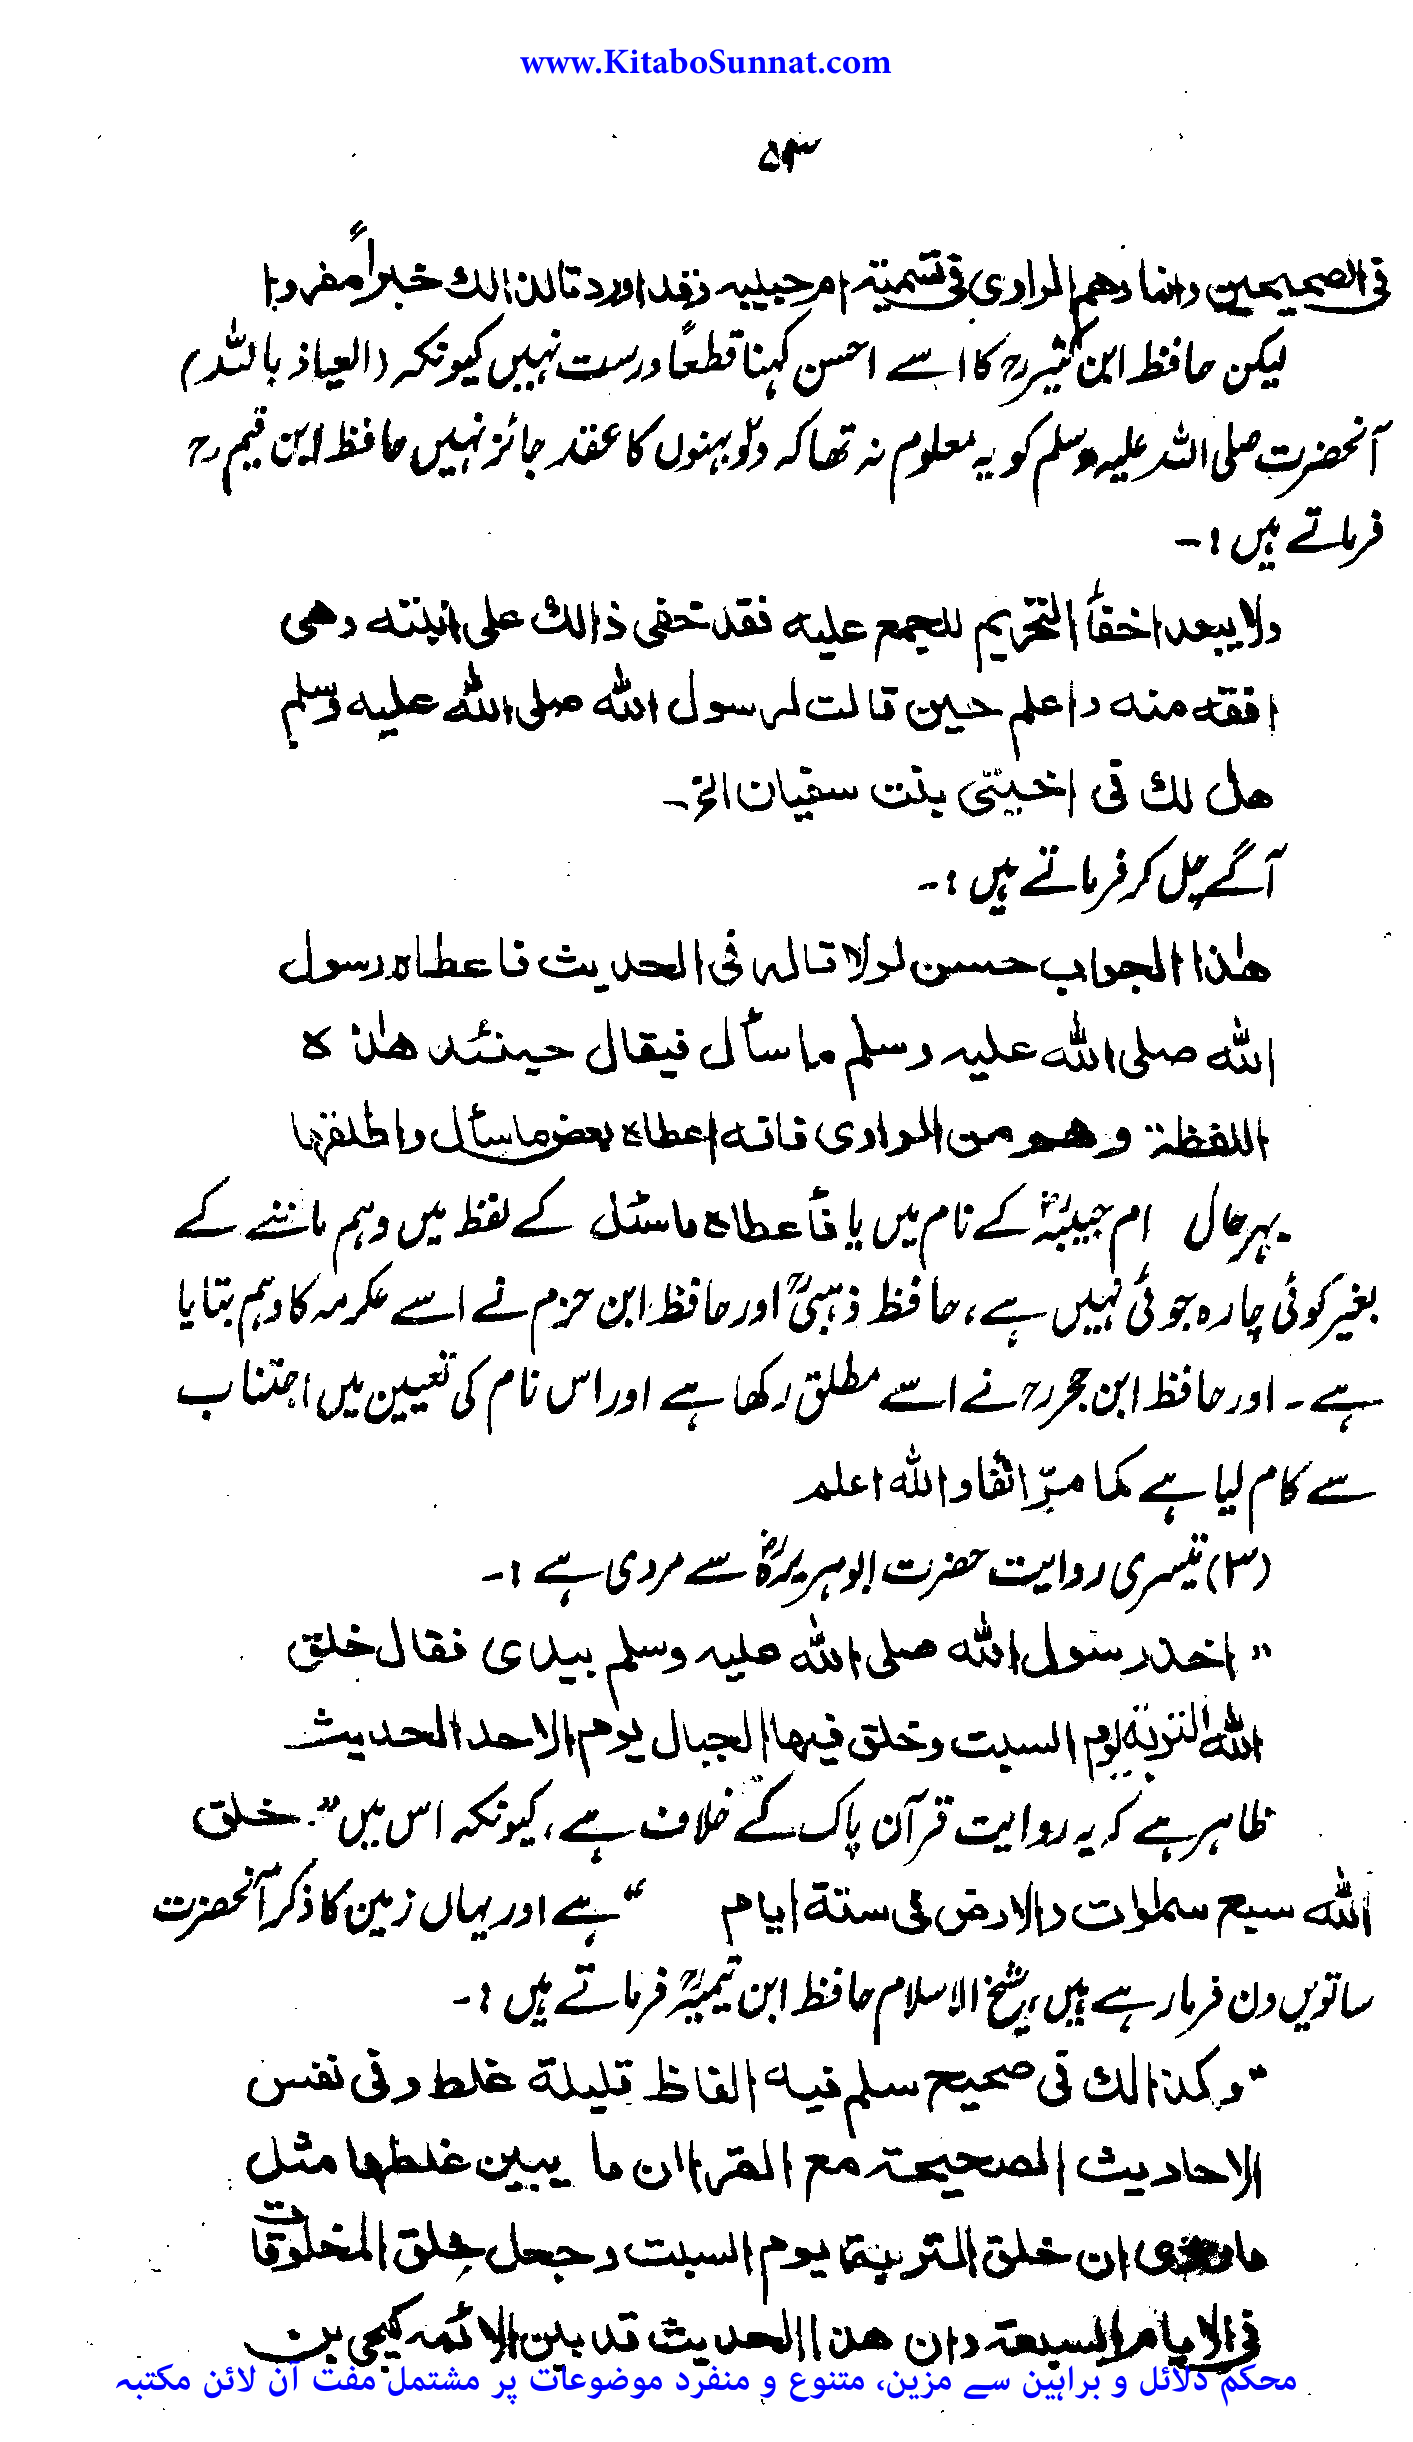 www.KitaboSunnat.com
۵۳
فی الصحیحین وانما وهم الراوی فی تسمیة ام حبیبه وقد اورد تا لذالك خبراً مفردا
لیکن حافظ ابن کثیر رح کا اسے احسن کہنا قطعاً درست نہیں کیونکہ (العیاذ باللہ)
آنحضرت صلی اللہ علیہ وسلم کو یہ معلوم نہ تھا کہ دو بہنوں کا عقد جائز نہیں حافظ ابن قیم رح
فرماتے ہیں :-
ولا یبعد اخفأ التحریم للجمع علیه فقد خفی ذالك علی ابنته وهی
افقه منه واعلم حین قالت لرسول الله صلی الله علیه وسلم
هل لك فی اختی بنت سفیان الخ-
آگے چل کر فرماتے ہیں :-
هٰذا الجواب حسن لولا قاله فی الحدیث فاعطاه رسول
الله صلی الله علیه وسلم ما سأل فیقال حینئذ هٰذه
اللفظة وهم من الراوی فانه اعطاه بعض ما سأل واطلقها
بہرحال ام حبیبہؓ کے نام میں یا فأعطاه ما سئل کے لفظ میں وہم ماننے کے
بغیر کوئی چارہ جوئی نہیں ہے، حافظ ذہبیؒ اور حافظ ابن حزم نے اسے عکرمہ کا وہم بتایا
ہے۔ اور حافظ ابن حجر رح نے اسے مطلق رکھا ہے اور اس نام کی تعیین میں اجتناب
سے کام لیا ہے کما مرّ انفًا والله اعلم
(۳) تیسری روایت حضرت ابوہریرہؓ سے مروی ہے :-
” اخذ رسول الله صلی الله علیه وسلم بیدی فقال خلق
الله التربة یوم السبت وخلق فیها الجبال یوم الاحد الحدیث
ظاہر ہے کہ یہ روایت قرآن پاک کے خلاف ہے، کیونکہ اس میں ” خلق
الله سبع سمٰوات والارض فی ستة ایام “ ہے اور یہاں زمین کا ذکر آنحضرت
ساتویں دن فرما رہے ہیں، شیخ الاسلام حافظ ابن تیمیہؒ فرماتے ہیں :-
” وکذالك فی صحیح مسلم فیه الفاظ قلیلة غلط وفی نفس
الاحادیث الصحیحة مع القراان ما یبین غلطها مثل
ما روی ان خلق التربة یوم السبت وجعل خلق المخلوقات
فی الایام السبعة وان هذا الحدیث قد بین الائمه کیحی بن
محکم دلائل و براہین سے مزین، متنوع و منفرد موضوعات پر مشتمل مفت آن لائن مکتبہ